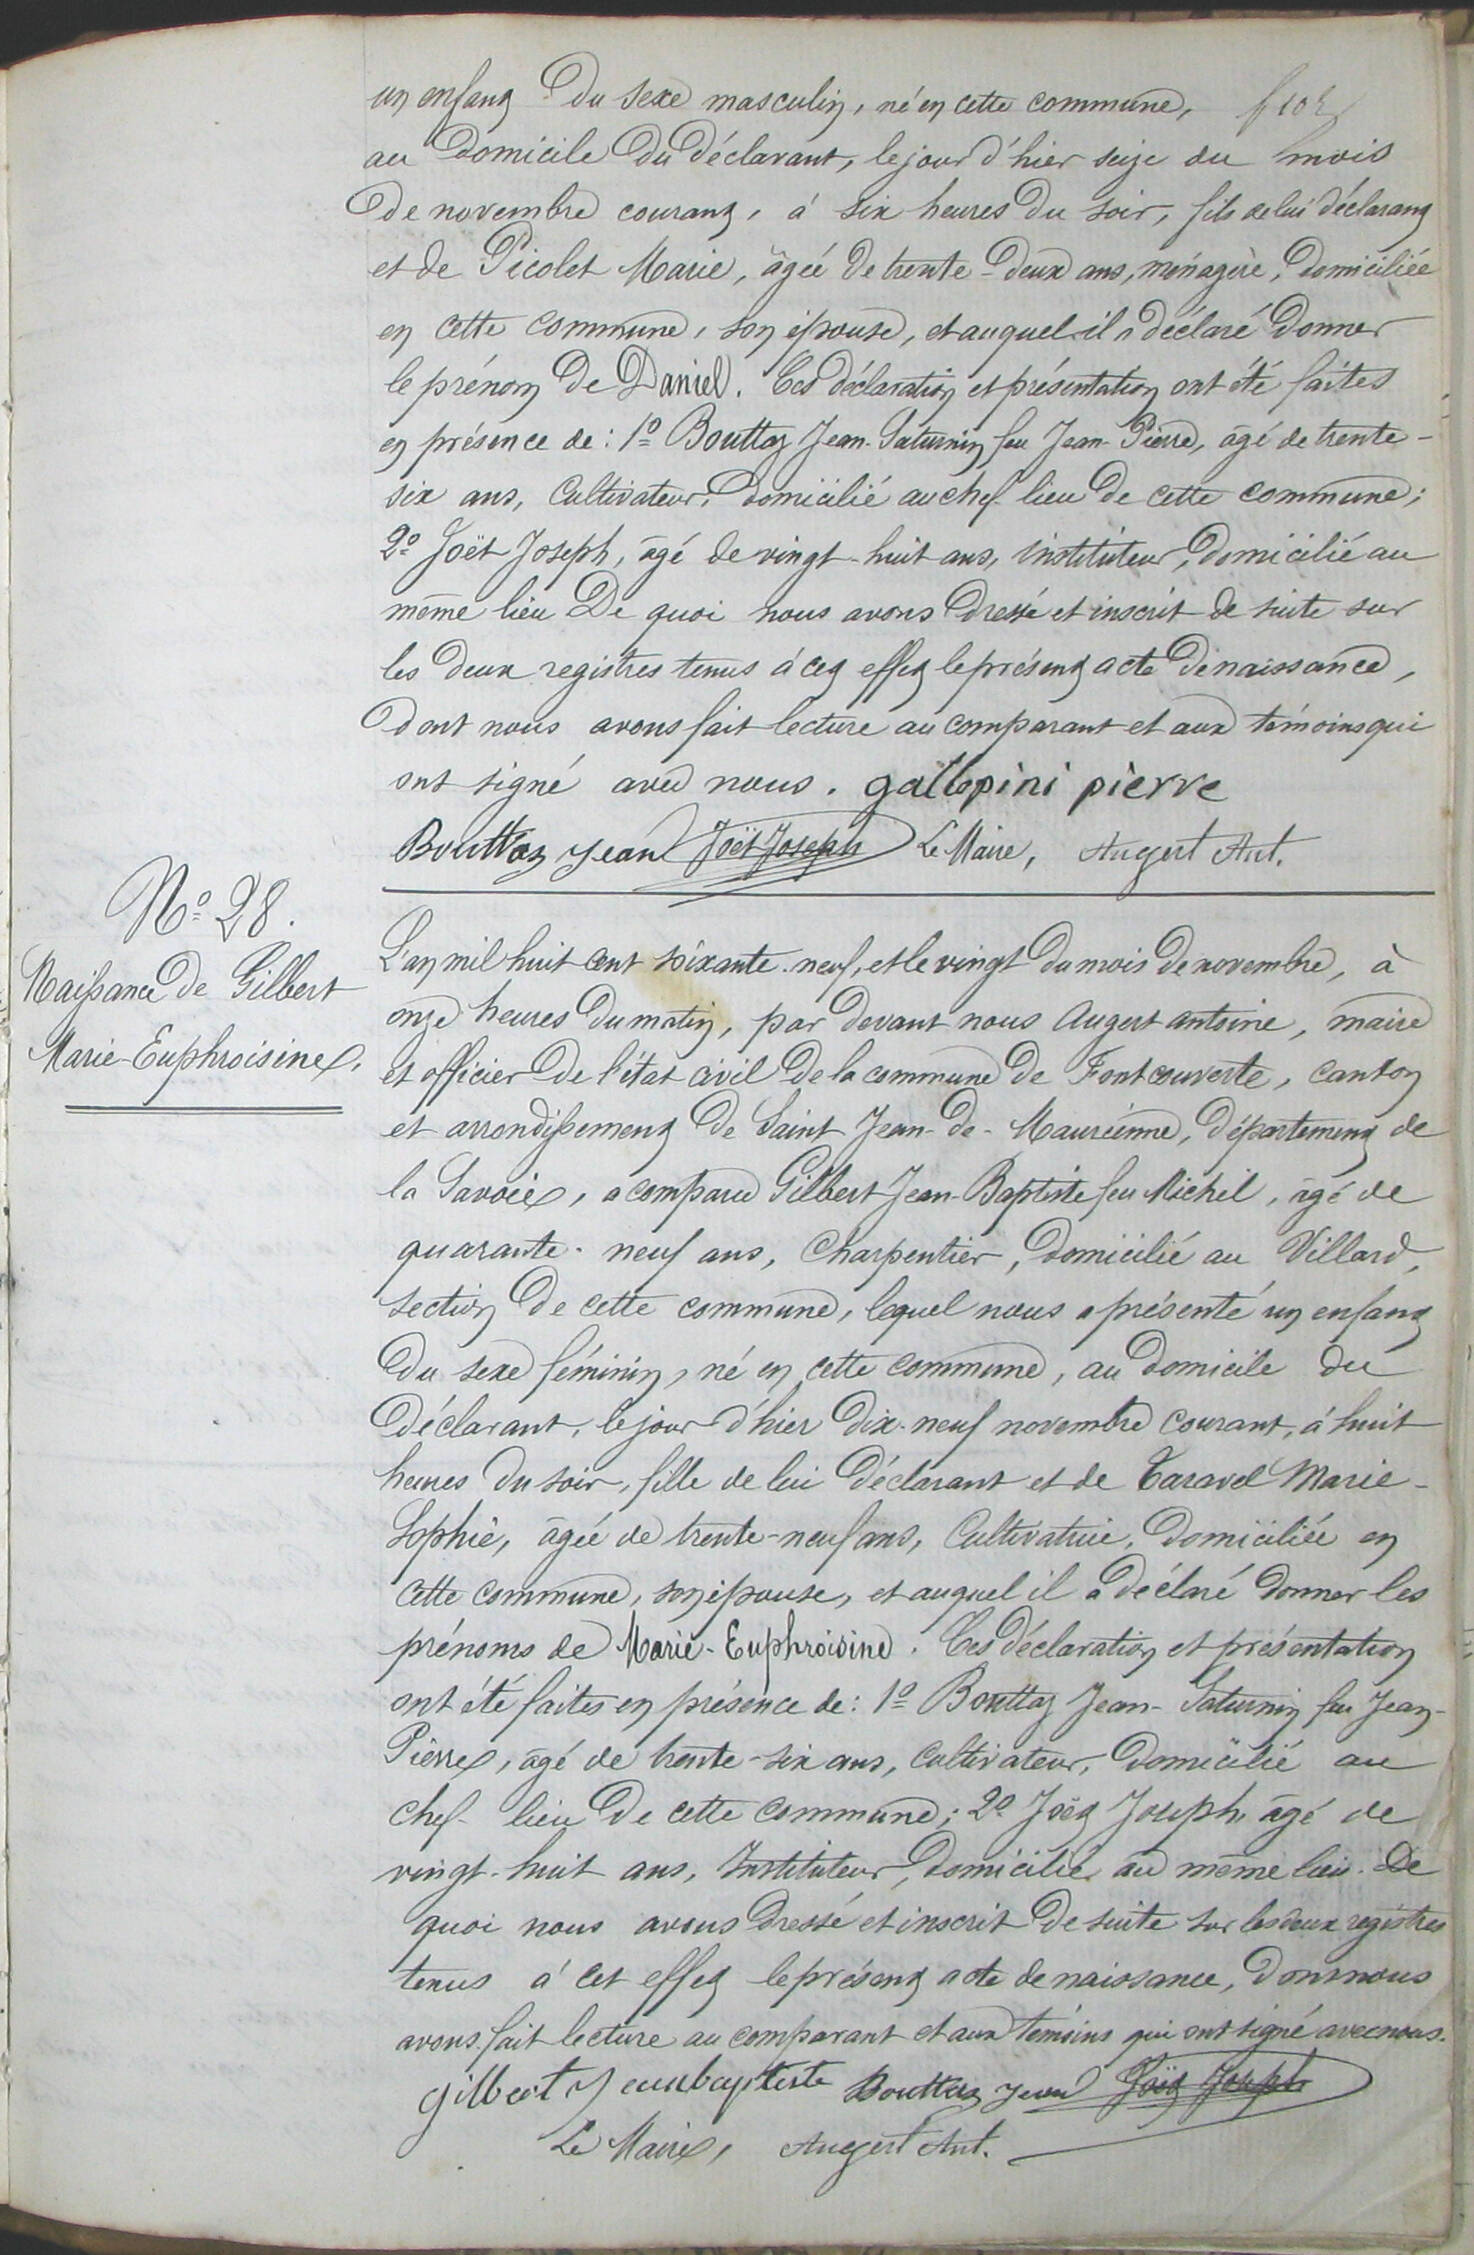 un enfant du sexe masculin, né en cette commune,
au domicile du déclarant, le jour d'hier seize du mois
de novembre courant, à six heures du soir, fils de lui déclarant
et de Picolet Marie, âgée de trente-deux ans, ménagère, domiciliée
en cette commune, son épouse, et auquel il a déclaré donner
le prénom de Daniel. Ces déclaration et présentation ont été faites
en présence de: 1º Bouttaz Jean-Saturnin feu Jean-Pierre, âgé de trente-
six ans, Cultivateur, domicilié au chef-lieu de cette commune;
2º Joët Joseph, âgé de vingt-huit ans, instituteur, domicilié au
même lieu De quoi nous avons dressé et inscrit de suite sur
les deux registres tenus à cet effet le présent acte de naissance,
dont nous avons fait lecture au comparant et aux témoins qui
ont signé avec nous. gallopini pierre
Bouttaz Jean Joët Joseph Le Maire, Augert Ant.
Nº 28.
Naissance de Gilbert
Marie-Euphroisine.
L'an mil huit cent soixante-neuf, et le vingt du mois de novembre, à
onze heures du matin, par devant nous Augert antoine, maire
et officier de l'état civil de la commune de Fontcouverte, canton
et arrondissement de Saint Jean-de-Maurienne, département de
la Savoie, a comparu Gilbert Jean-Baptiste feu Michel, âgé de
quarante-neuf ans, Charpentier, domicilié au Villard,
section de cette commune, lequel nous a présenté un enfant
du sexe féminin, né en cette commune, au domicile du
déclarant, le jour d'hier dix-neuf novembre courant, à huit
heures du soir, fille de lui déclarant et de Taravel Marie-
Sophie, âgée de trente-neuf ans, Cultivatrice, domiciliée en
cette commune, son épouse, et auquel il a déclaré donner les
prénoms de Marie-Euphroisine. Ces déclaration et présentation
ont été faites en présence de: 1º Bouttaz Jean-Saturnin feu Jean-
Pierre, âgé de trente-six ans, Cultivateur, domicilié au
chef-lieu de cette commune; 2º Joët Joseph, âgé de
vingt-huit ans, Instituteur, domicilié au même lieu. De
quoi nous avons dressé et inscrit de suite sur les deux registres
tenus à cet effet le présent acte de naissance, dont nous
avons fait lecture au comparant et aux témoins qui ont signé avec nous.
gilbert Jeanbaptiste Bouttaz Jean Joët Joseph
Le Maire, Augert Ant.